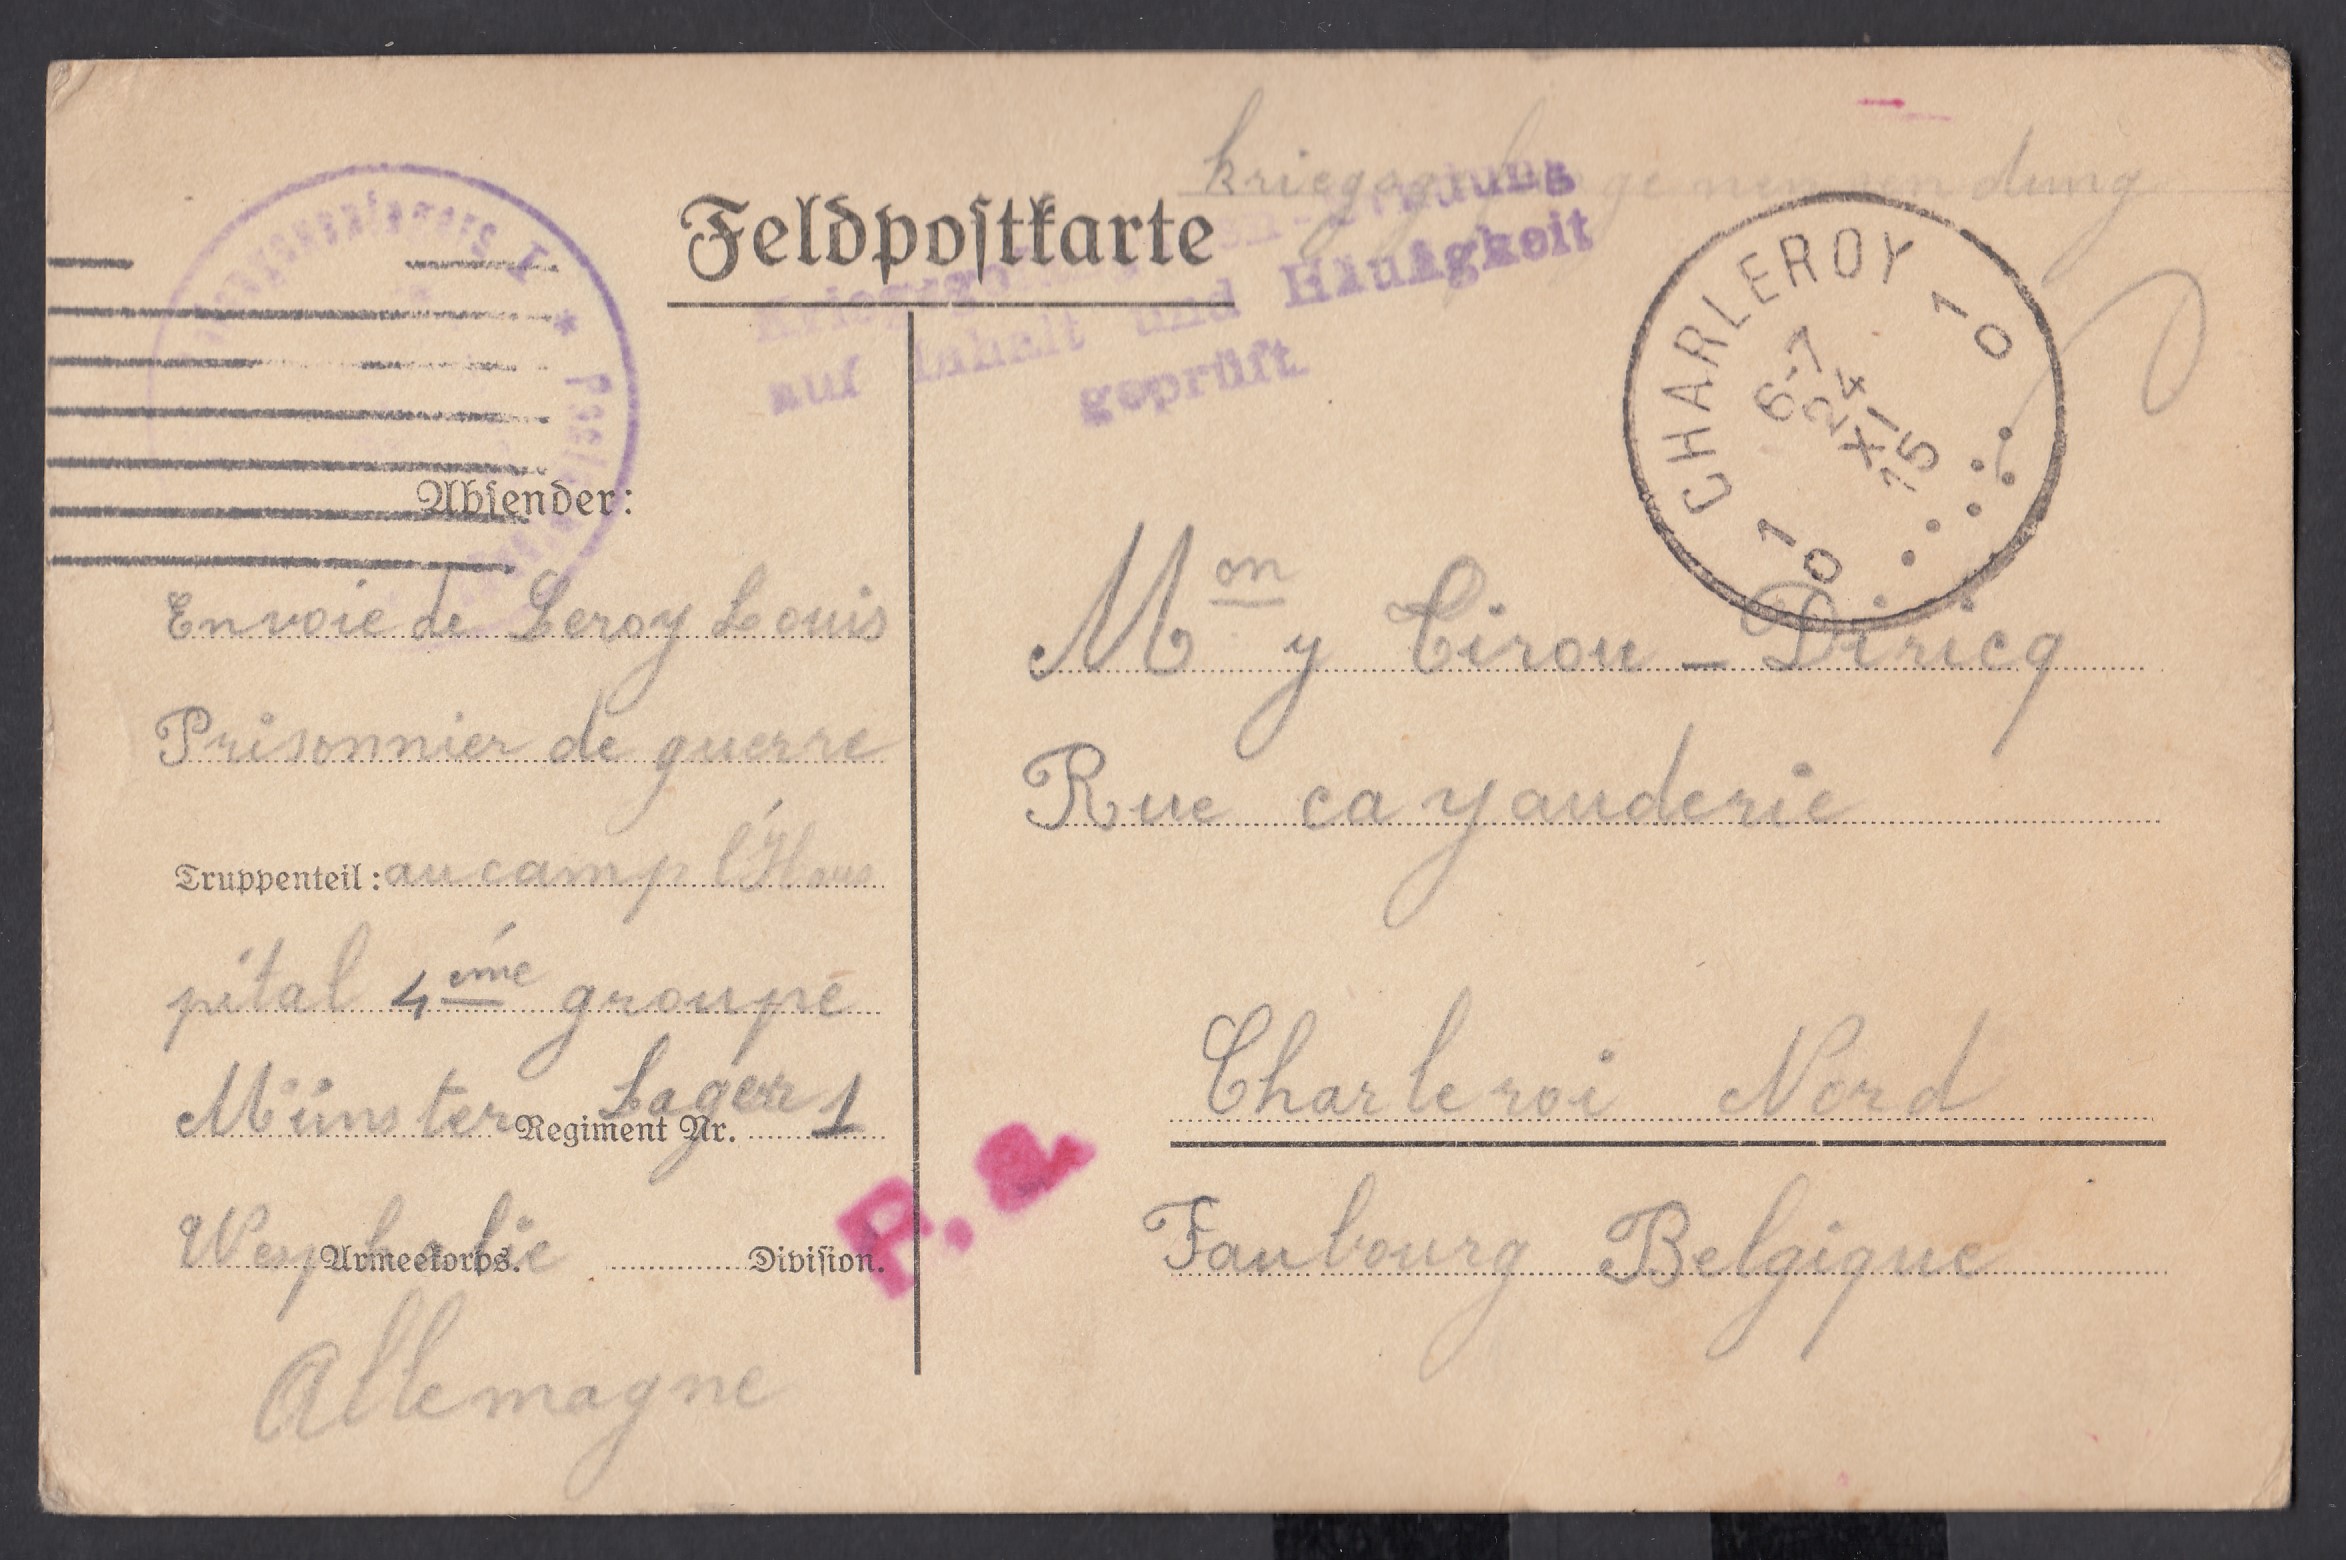 Kriegsgefangenensendung
Feldpostkarte
auf Inhalt und Häufigkeit
geprüft.
CHARLEROY
10 10
6-7
24
XI
15
Absender:
Envoie de Leroy Louis
Prisonnier de guerre
Truppenteil: au camp l'Hous
pital 4ème groupe
Münster Lager 1
Regiment Nr.
Wesphalie
Armeekorps. Division.
Allemagne
Mon y Tirou - Diricq
Rue cayauderie
Charleroi Nord
Faubourg Belgique
P.